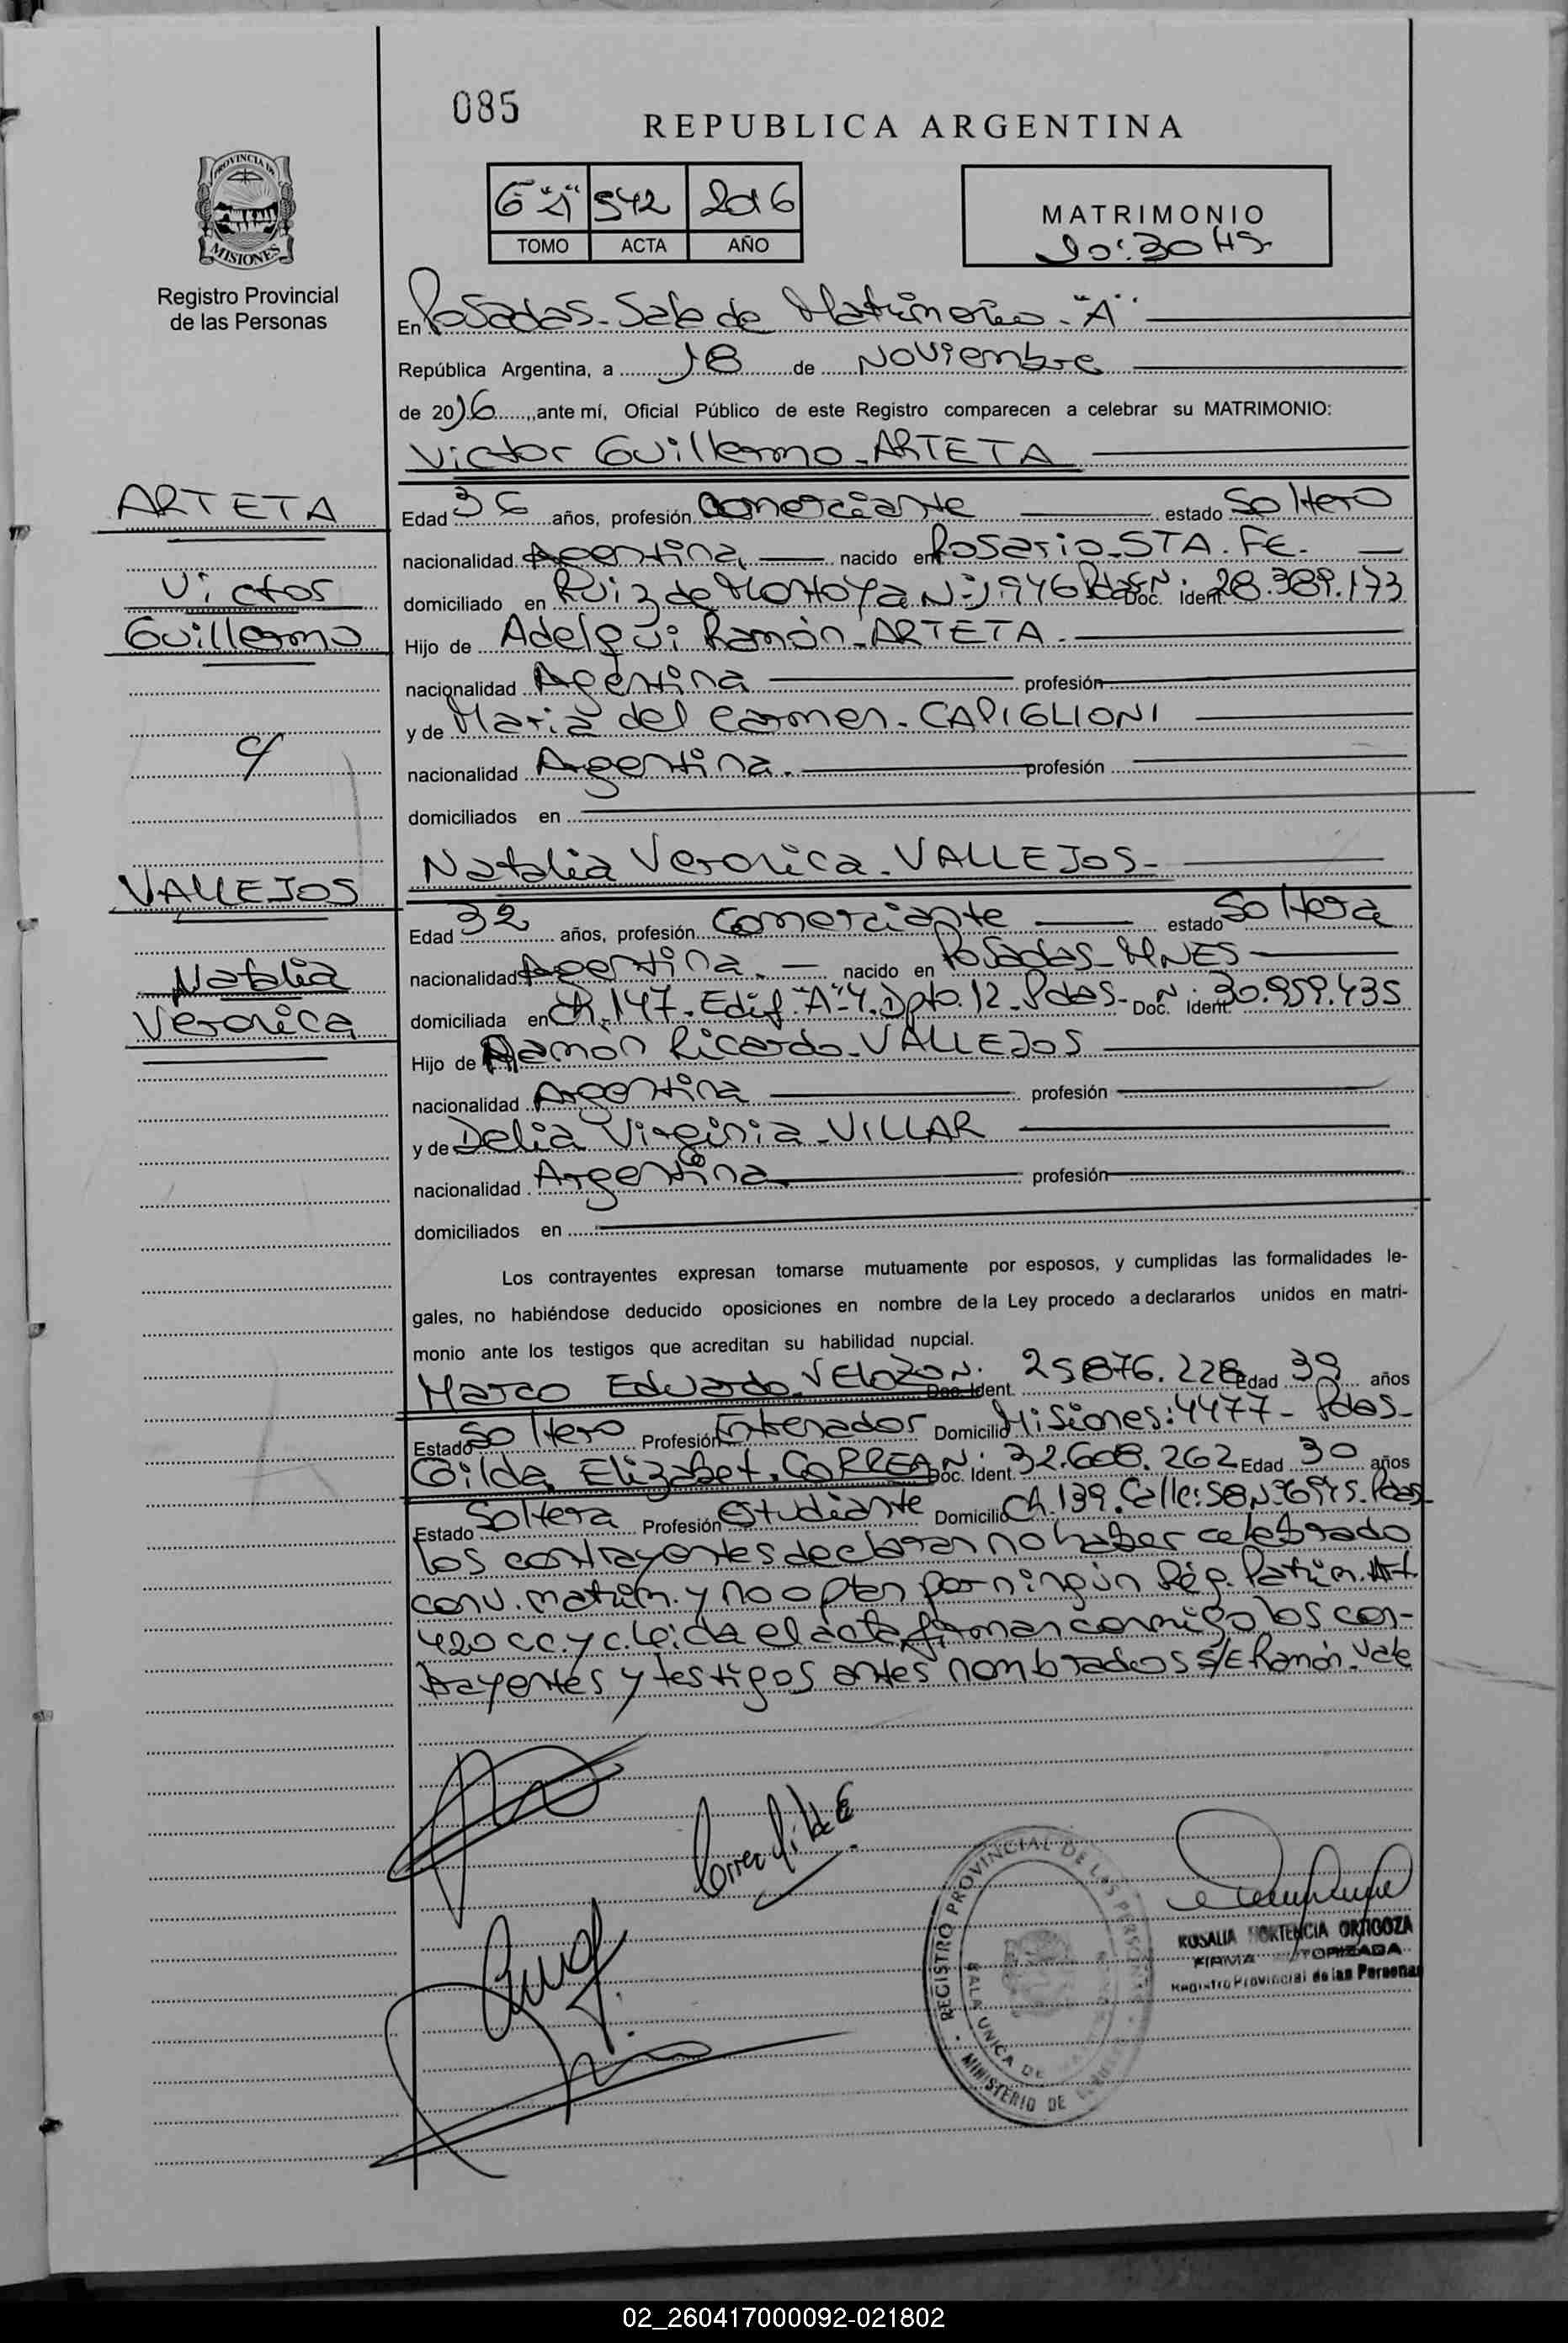 085
REPUBLICA ARGENTINA
6 "A" 942 2016
TOMO ACTA AÑO
MATRIMONIO
10:30 HS
PROVINCIA DE
MISIONES
Registro Provincial
de las Personas
En Posadas-Sala de Matrimonio-"A"
República Argentina, a 18 de Noviembre
de 2016, ante mí, Oficial Público de este Registro comparecen a celebrar su MATRIMONIO:
Victor Guillermo-ARTETA
ARTETA
Victor
Guillermo
Edad 36 años, profesión Comerciante estado Soltero
nacionalidad Argentina nacido en Rosario-STA.FE.
domiciliado en Ruiz de Montoya N°1946 Pdas Doc. Ident. N° 28.389.173
Hijo de Adelqui Ramón-ARTETA
nacionalidad Argentina profesión
y de Maria del Carmen-CAPIGLIONI
nacionalidad Argentina. profesión
domiciliados en
c/
Natalia Veronica-VALLEJOS-
VALLEJOS
Natalia
Veronica
Edad 32 años, profesión Comerciante estado Soltera
nacionalidad Argentina. nacido en Posadas-MNES
domiciliada en Ch.147-Edif."A"-4.Dpto.12-Pdas- Doc. Ident. N° 30.959.435
Hijo de Ramón Ricardo-VALLEJOS
nacionalidad Argentina profesión
y de Delia Virginia-VILLAR
nacionalidad Argentina profesión
domiciliados en
Los contrayentes expresan tomarse mutuamente por esposos, y cumplidas las formalidades le-
gales, no habiéndose deducido oposiciones en nombre de la Ley procedo a declararlos unidos en matri-
monio ante los testigos que acreditan su habilidad nupcial.
Marco Eduardo-VELOZO Doc. Ident. N° 25876.228 Edad 39 años
Estado Soltero Profesión Entrenador Domicilio Misiones:4477-Pdas-
Gilda Elizabet.CORREA Doc. Ident. N° 32.608.262 Edad 30 años
Estado Soltera Profesión Estudiante Domicilio Ch.139.Calle:58N°6945-Pdas-
los contrayentes declaran no haber celebrado
conv. matrim. y no optan por ningún Rég. Patrim. Art
420 c.c.y c. Leída el acta, firman conmigo los con-
trayentes y testigos antes nombrados s/E Ramón. Vale
Correa Gilda
REGISTRO PROVINCIAL DE LAS PERSONAS
SALA UNICA DE
MINISTERIO DE
ROSALIA HORTENCIA ORTIGOZA
FIRMA AUTORIZADA
Registro Provincial de las Personas
02_260417000092-021802